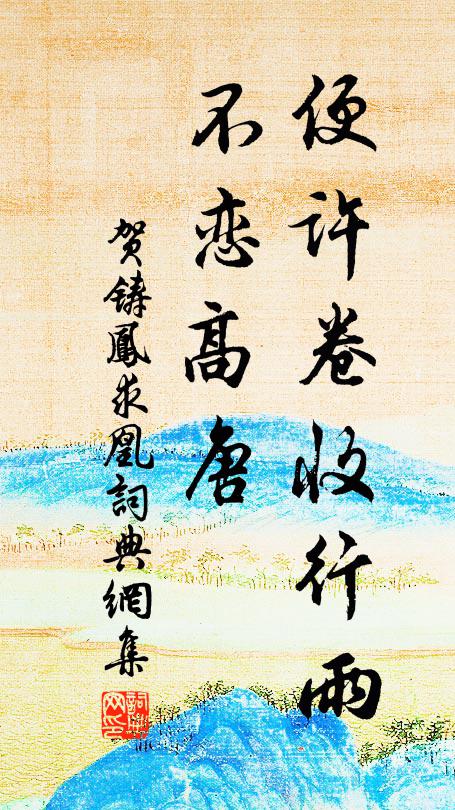 便许卷收行雨
不恋高唐
贺铸鳳求凰詞典網集